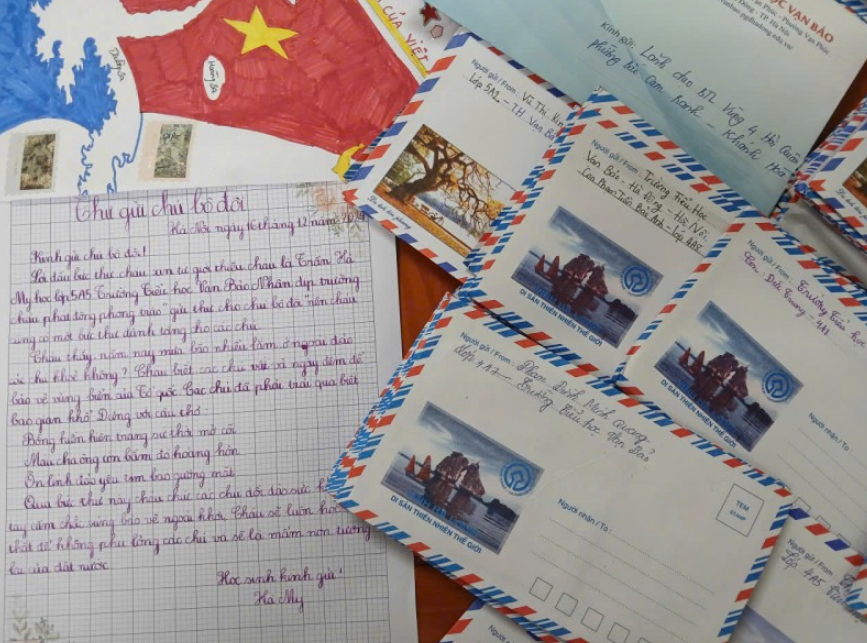 CỦA VIỆT
Hoàng Sa
Thư gửi chú bộ đội
Hà Nội ngày 16 tháng 12 năm
Kính gửi chú bộ đội!
Lời đầu bức thư cháu xin tự giới thiệu cháu là Trần Hà
My học lớp 5A5 Trường Tiểu học Văn Bảo. Nhân dịp trường
cháu phát động phong trào "gửi thư cho chú bộ đội" nên cháu
cũng có một bức thư dành tặng cho các chú
Cháu thấy năm nay mưa bão nhiều lắm ở ngoài đảo
các chú khỏe không? Cháu biết các chú vất vả ngày đêm để
bảo vệ vùng biển của Tổ quốc. Các chú đã phải trải qua biết
bao gian khổ. Đúng với câu thơ:
Bóng hiên
Màu
Ôn linh đảo yêu tim bao gương mặt
Qua bức thư này cháu chúc các chú dồi dào sức
tay cầm chắc súng bảo vệ ngoài khơi. Cháu sẽ luôn
thật tốt để không phụ lòng các chú và sẽ là mầm non tương
lai của đất nước
Học sinh kính gửi!
Hà My
ỌC VẠN BẢO
Vạn Phúc - Phường Vạn Phúc
Đông - TP. Hà Nội
Kính gửi: Lãnh đạo BTL Vùng 4 Hải Quân
phường Cam Ranh - Khánh Hoà
Người gửi / From: Vũ Thị
Lớp 5A2 - TH Vạn Bảo
Người gửi / From: Trường Tiểu Học
Vạn Bảo - Hà Đông - Hà Nội
Con Phan Trần Bảo Anh - lớp 4A5
DI SẢN THIÊN NHIÊN THẾ GIỚI
Người gửi / From: Trường Tiểu học
Con: Đức Trung - 4A1
DI SẢN THIÊN NHIÊN THẾ GIỚI
Người nhận / To:
Người gửi / From: Phạm Đình Minh Quang
Lớp 4A7 - Trường Tiểu học Vạn Bảo
DI SẢN THIÊN NHIÊN THẾ GIỚI
Người nhận / To:
TEM
STAMP
Người gửi / From:
Lớp 4A5